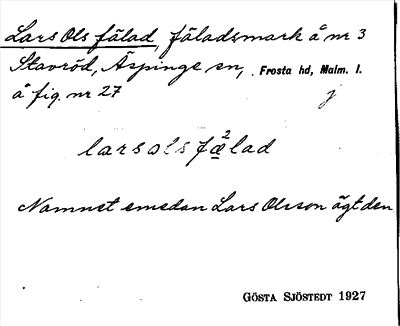 Lars Ols fälad, fäladsmark å nr 3
Stavröd, Äspinge sn, Frosta hd, Malm. l.
å fig. nr 27
larsols fä²lad
Namnet emedan Lars Olsson ägt den
GÖSTA SJÖSTEDT 1927